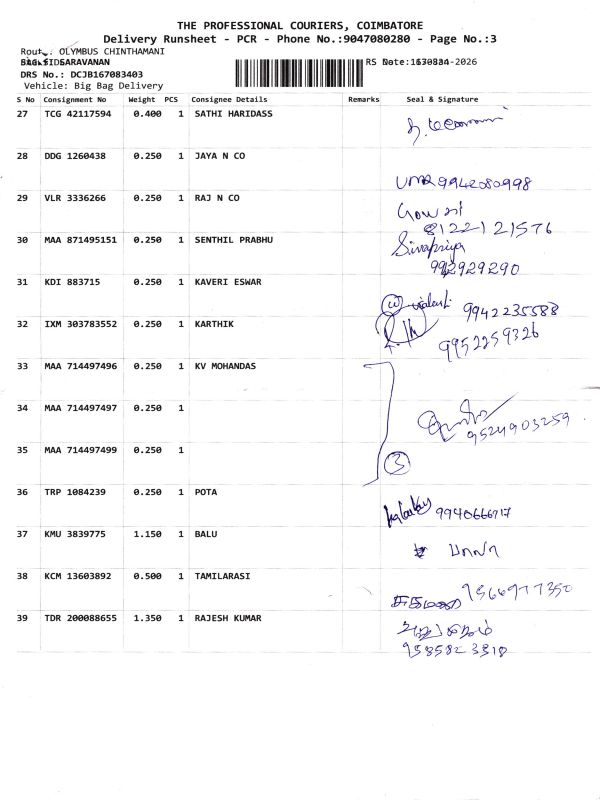 THE PROFESSIONAL COURIERS, COIMBATORE
Delivery Runsheet - PCR - Phone No.:9047080280 - Page No.:3
Route: OLYMBUS CHINTHAMANI
SARAVANAN
DRS No.: DCJB167083403
Vehicle: Big Bag Delivery
S No Consignment No Weight PCS Consignee Details Remarks Seal & Signature
27 TCG 42117594 0.400 1 SATHI HARIDASS
28 DDG 1260438 0.250 1 JAYA N CO
9942080998
29 VLR 3336266 0.250 1 RAJ N CO
8122121576
30 MAA 871495151 0.250 1 SENTHIL PRABHU Sivapriya
31 KDI 883715 0.250 1 KAVERI ESWAR
9942235588
32 IXM 303783552 0.250 1 KARTHIK
9952259326
33 MAA 714497496 0.250 1 KV MOHANDAS
34 MAA 714497497 0.250 1
9524903259
35 MAA 714497499 0.250 1
3
36 TRP 1084239 0.250 1 POTA
9940666717
37 KMU 3839775 1.150 1 BALU
38 KCM 13603892 0.500 1 TAMILARASI
39 TDR 200088655 1.350 1 RAJESH KUMAR